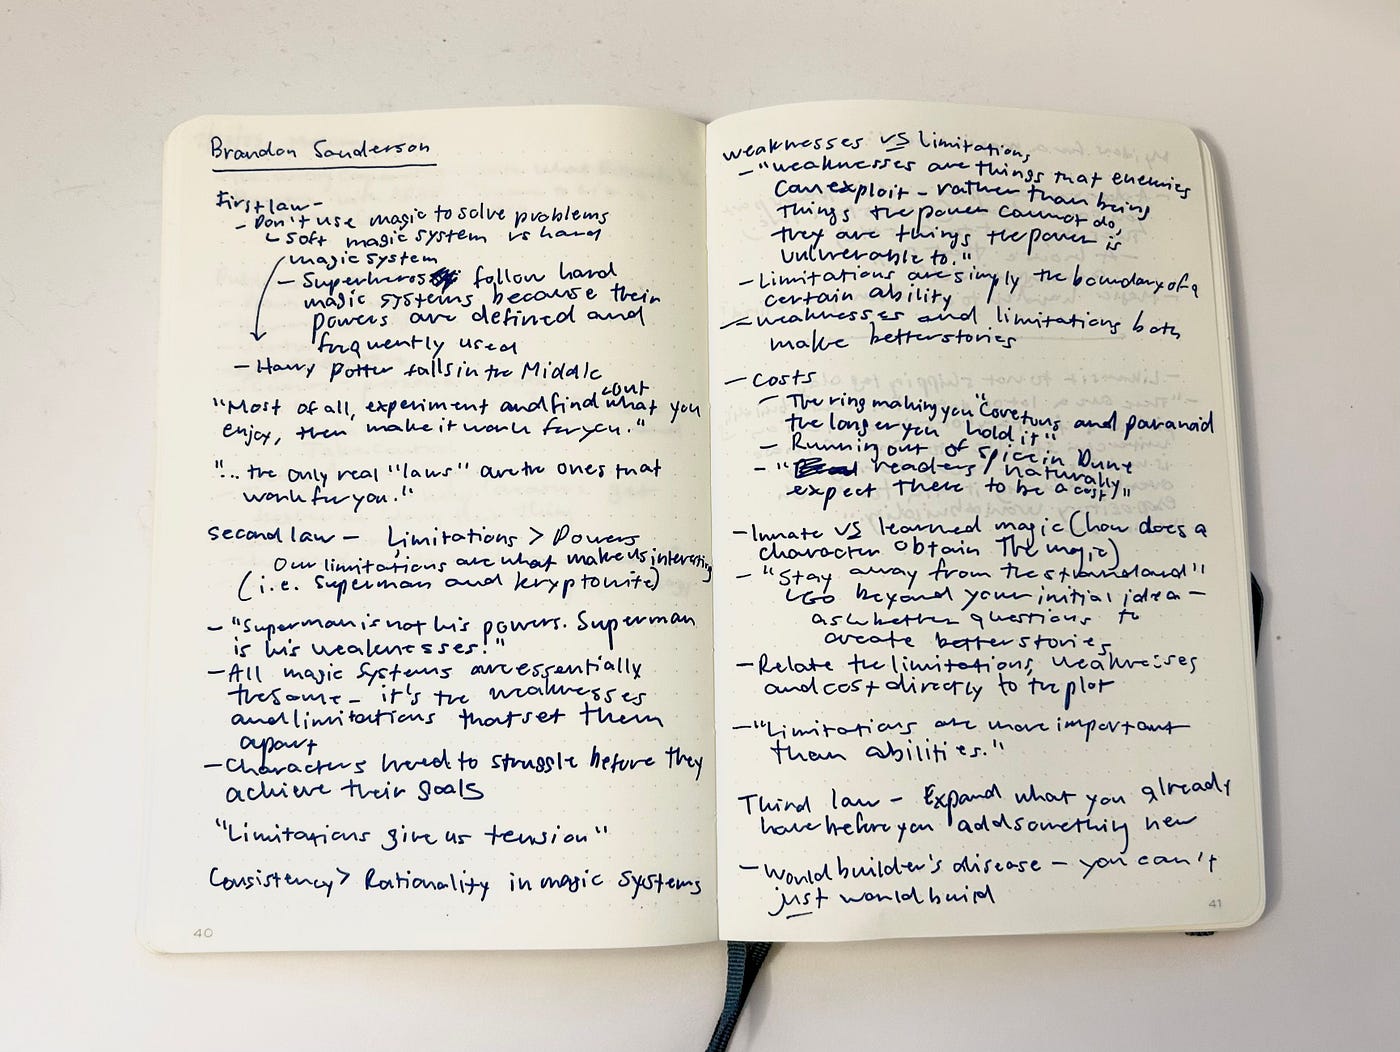 Brandon Sanderson
First law -
- Don't use magic to solve problems
↳ soft magic system vs hard
magic system
- Superheros follow hard
magic systems because their
powers are defined and
frequently used
- Harry Potter falls in the Middle
"Most of all, experiment and find out what you
enjoy, then make it work for you."
"... the only real "laws" are the ones that
work for you."
second law - Limitations > Powers
Our limitations are what make us interesting
(i.e. Superman and kryptonite)
- "Superman is not his powers. Superman
is his weaknesses."
- All magic systems are essentially
the same - it's the weaknesses
and limitations that set them
apart
- Characters need to struggle before they
achieve their goals
"Limitations give us tension"
Consistency > Rationality in magic systems
40
weaknesses vs limitations
- "weaknesses are things that enemies
can exploit - rather than being
things the power cannot do,
they are things the power is
vulnerable to."
- Limitations are simply the boundary of a
certain ability
- weaknesses and limitations both
make better stories
- costs
- The ring making you "covetous and paranoid
the longer you hold it"
- Running out of spice in Dune
- " readers naturally
expect there to be a cost"
- Innate vs learned magic (how does a
character obtain the magic)
- "Stay away from the standard"
↳ Go beyond your initial idea -
ask better questions to
create better stories
- Relate the limitations, weaknesses
and cost directly to the plot
- "Limitations are more important
than abilities."
Third law - Expand what you already
have before you add something new
- Worldbuilder's disease - you can't
just worldbuild
41